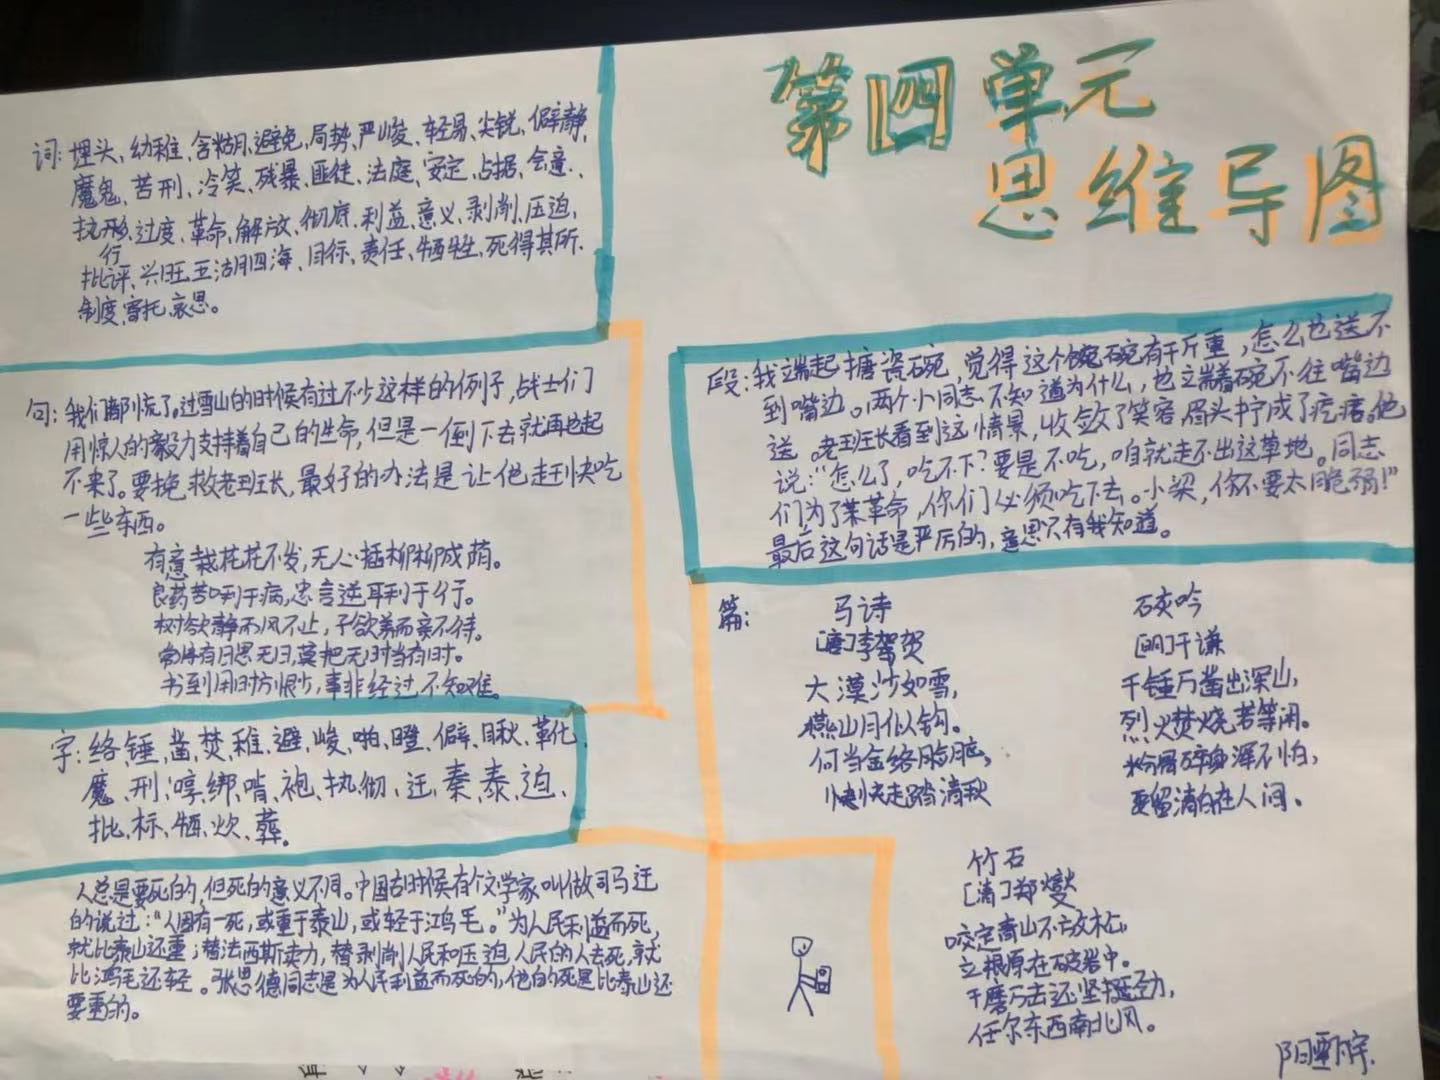 第四单元
思维导图
词:埋头、幼稚、含糊、避免、局势、严峻、轻易、尖锐、僻静、
魔鬼、苦刑、冷笑、残暴、匪徒、法庭、安定、占据、会意、
执行、过度、革命、解放、彻底、利益、意义、剥削、压迫、
批评、兴旺、五湖四海、目标、责任、牺牲、死得其所、
制度、寄托、哀思。
句:我们都慌了。过雪山的时候有过不少这样的例子,战士们
用惊人的毅力支持着自己的生命,但是一倒下去就再也起
不来了。要挽救老班长,最好的办法是让他赶快吃
一些东西。
有意栽花花不发,无心插柳柳成荫。
良药苦口利于病,忠言逆耳利于行。
树欲静而风不止,子欲养而亲不待。
常将有日思无日,莫把无时当有时。
书到用时方恨少,事非经过不知难。
字:络、锤、凿、焚、稚、避、峻、啪、瞪、僻、瞅、靴、
魔、刑、哼、绑、啃、袍、执、彻、迁、秦、泰、迫、
批、标、牺、炊、葬。
人总是要死的,但死的意义不同。中国古时候有个文学家叫做司马迁
的说过:“人固有一死,或重于泰山,或轻于鸿毛。”为人民利益而死,
就比泰山还重;替法西斯卖力,替剥削人民和压迫人民的人去死,就
比鸿毛还轻。张思德同志是为人民利益而死的,他的死是比泰山还
要重的。
段:我端起搪瓷碗,觉得这个碗有千斤重,怎么也送不
到嘴边。两个小同志不知道为什么,也端着碗不往嘴边
送。老班长看到这情景,收敛了笑容,眉头拧成了疙瘩。他
说:“怎么了,吃不下?要是不吃,咱就走不出这草地。同志
们为了革命,你们必须吃下去。小梁,你不要太脆弱!”
最后这句话是严厉的,意思只有我知道。
篇:
马诗
[唐]李贺
大漠沙如雪,
燕山月似钩。
何当金络脑,
快走踏清秋
石灰吟
[明]于谦
千锤万凿出深山,
烈火焚烧若等闲。
粉骨碎身浑不怕,
要留清白在人间。
竹石
[清]郑燮
咬定青山不放松,
立根原在破岩中。
千磨万击还坚劲,
任尔东西南北风。